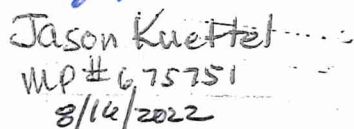 Jason Kueffel
MP# 675751
8/16/2022